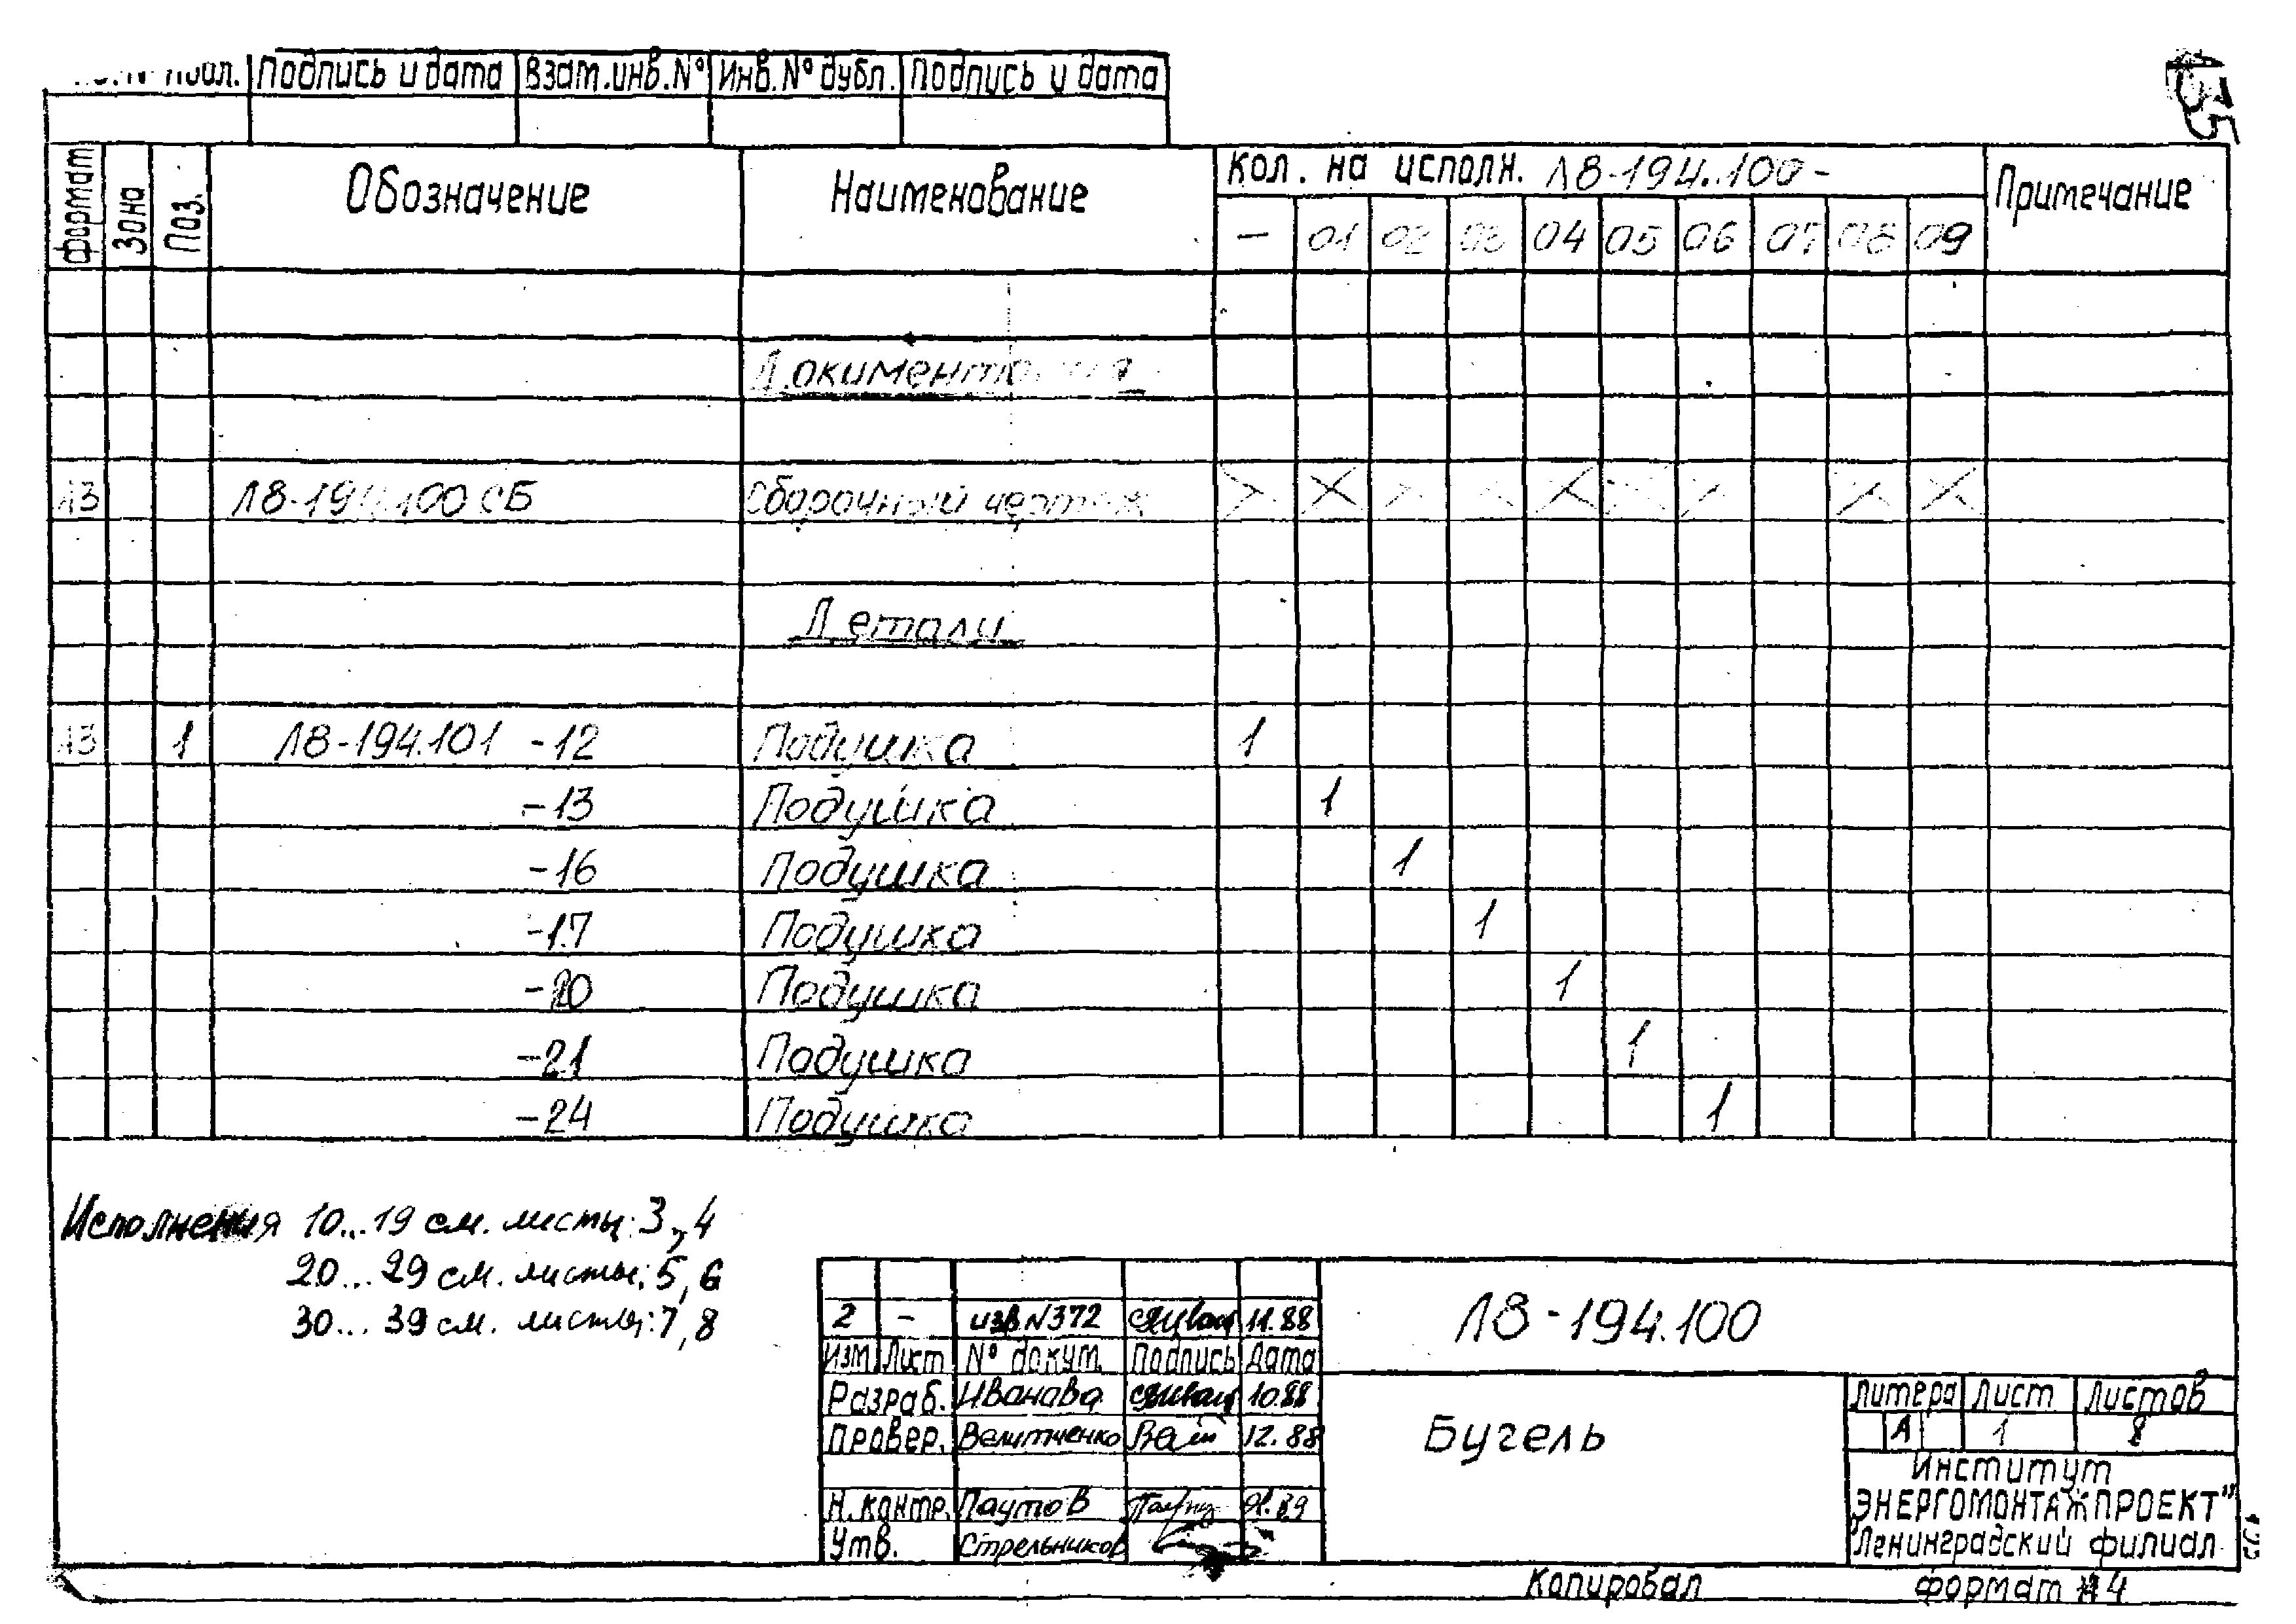 подл. Подпись и дата Взам.инв.№ Инв.№ дубл. Подпись и дата
135
формат Зона Поз. Обозначение Наименование Кол. на исполн. Л8-194.100- Примечание
— 01 02 03 04 05 06 07 08 09
Документация
А3 Л8-194.100 СБ Сборочный чертеж X X X X X X X X X
Детали
А3 1 Л8-194.101 -12 Подушка 1
-13 Подушка 1
-16 Подушка 1
-17 Подушка 1
-20 Подушка 1
-21 Подушка 1
-24 Подушка 1
Исполнения 10...19 см. листы: 3, 4
20...29 см. листы: 5, 6
30...39 см. листы: 7, 8
2 - изв N372 11.88
Изм Лист № докум. Подпись Дата
Разраб. Иванова 10.88
Провер. Велитченко 12.88
Н.контр. Паутов 01.89
Утв. Стрельников
Л8-194.100
Бугель
Литера Лист Листов
А 1 8
Институт
"ЭНЕРГОМОНТАЖПРОЕКТ"
Ленинградский филиал
Копировал формат А4